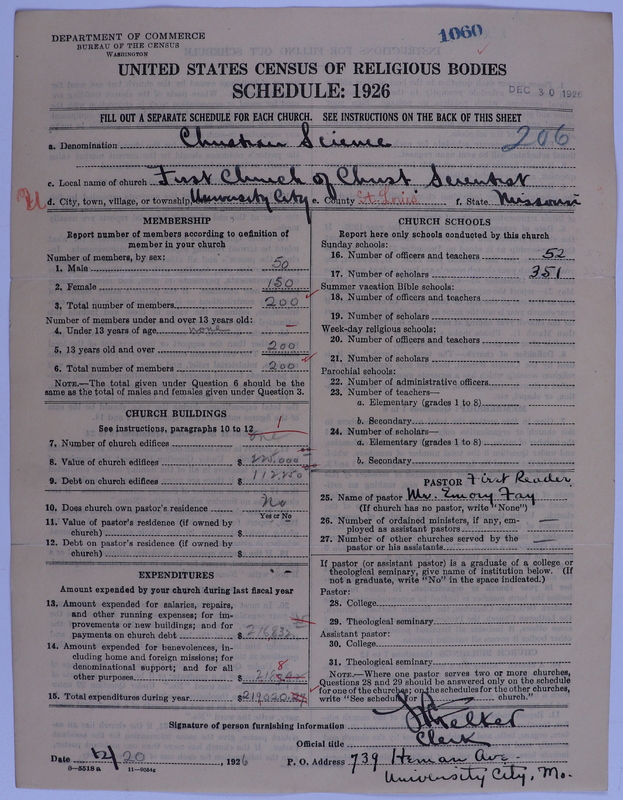 DEPARTMENT OF COMMERCE
BUREAU OF THE CENSUS
WASHINGTON
1060
UNITED STATES CENSUS OF RELIGIOUS BODIES
SCHEDULE: 1926
DEC 30 1926
FILL OUT A SEPARATE SCHEDULE FOR EACH CHURCH. SEE INSTRUCTIONS ON THE BACK OF THIS SHEET
a. Denomination Christian Science 206
c. Local name of church First Church of Christ Scientist
d. City, town, village, or township University City e. County St. Louis f. State Missouri
MEMBERSHIP
Report number of members according to definition of
member in your church
Number of members, by sex:
1. Male 50
2. Female 150
3. Total number of members 200
Number of members under and over 13 years old:
4. Under 13 years of age none —
5. 13 years old and over 200
6. Total number of members 200
NOTE.—The total given under Question 6 should be the
same as the total of males and females given under Question 3.
CHURCH BUILDINGS
See instructions, paragraphs 10 to 12
7. Number of church edifices one 1
8. Value of church edifices $ 225,000
9. Debt on church edifices $ 112250
10. Does church own pastor's residence No
Yes or No
11. Value of pastor's residence (if owned by
church) $
12. Debt on pastor's residence (if owned by
church) $
EXPENDITURES
Amount expended by your church during last fiscal year
13. Amount expended for salaries, repairs,
and other running expenses; for im-
provements or new buildings; and for
payments on church debt $ 216832
14. Amount expended for benevolences, in-
cluding home and foreign missions; for
denominational support; and for all
other purposes $
15. Total expenditures during year $ 219020
CHURCH SCHOOLS
Report here only schools conducted by this church
Sunday schools:
16. Number of officers and teachers 52
17. Number of scholars 351
Summer vacation Bible schools:
18. Number of officers and teachers
19. Number of scholars
Week-day religious schools:
20. Number of officers and teachers
21. Number of scholars
Parochial schools:
22. Number of administrative officers
23. Number of teachers—
a. Elementary (grades 1 to 8)
b. Secondary
24. Number of scholars—
a. Elementary (grades 1 to 8)
b. Secondary
PASTOR First Reader
25. Name of pastor Mr. Emory Fay
(If church has no pastor, write "None")
26. Number of ordained ministers, if any, em-
ployed as assistant pastors —
27. Number of other churches served by the
pastor or his assistants —
If pastor (or assistant pastor) is a graduate of a college or
theological seminary, give name of institution below. (If
not a graduate, write "No" in the space indicated.)
Pastor:
28. College
29. Theological seminary
Assistant pastor:
30. College
31. Theological seminary
NOTE.—Where one pastor serves two or more churches,
Questions 28 and 29 should be answered only on the schedule
for one of the churches; on the schedules for the other churches,
write "See schedule for church."
Signature of person furnishing information
Official title Clerk
Date 12/20, 1926 P. O. Address 739 Heman Ave.
University City, Mo.
8—5518 a 11—9024g